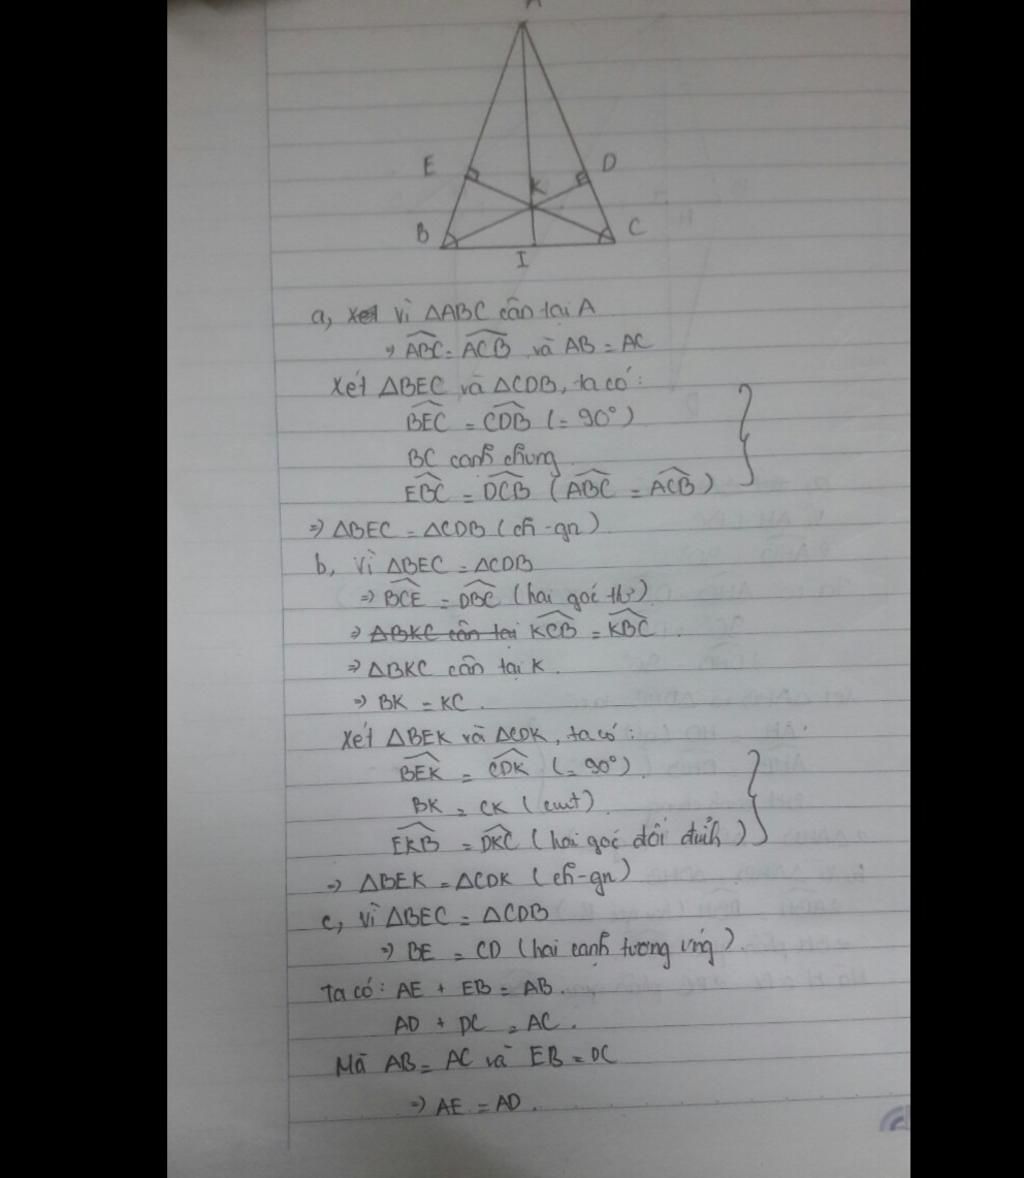 A
E
D
K
B
C
I
a, xét vì ΔABC cân tại A
⇒ ABC = ACB và AB = AC
Xét ΔBEC và ΔCDB, ta có:
BEC = CDB (= 90°)
BC cạnh chung
EBC = DCB (ABC = ACB)
⇒ ΔBEC = ΔCDB (ch - gn)
b, Vì ΔBEC = ΔCDB
⇒ BCE = DBC (hai góc tư)
⇒ ΔBKC cân tại KCB = KBC
⇒ ΔBKC cân tại K.
⇒ BK = KC.
Xét ΔBEK và ΔCDK, ta có:
BEK = CDK (= 90°)
BK = CK (cmt)
EKB = DKC (hai góc đối đỉnh)
⇒ ΔBEK = ΔCDK (ch-gn)
c, Vì ΔBEC = ΔCDB
⇒ BE = CD (hai cạnh tương ứng).
Ta có: AE + EB = AB.
AD + DC = AC.
Mà AB = AC và EB = DC
⇒ AE = AD.